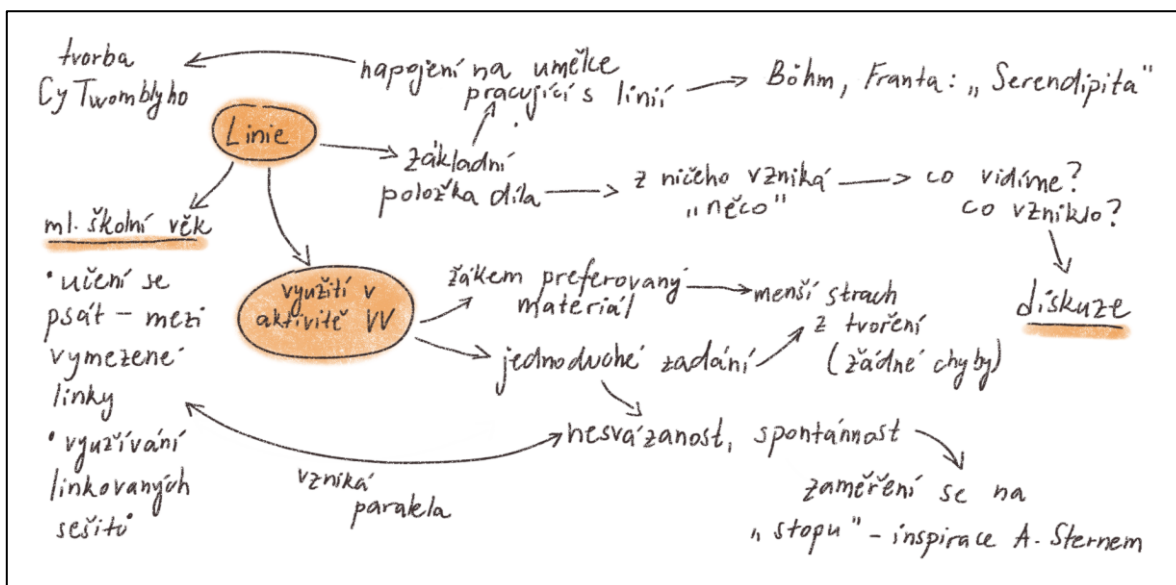 tvorba
Cy Twomblyho
napojení na umělce
pracující s linií
Böhm, Franta: „Serendipita"
Linie
základní
položka díla
z ničeho vzniká
„něco"
co vidíme?
co vzniklo?
diskuze
ml. školní věk
• učení se
psát – mezi
vymezené
linky
• využívání
linkovaných
sešitů
využití v
aktivitě VV
žákem preferovaný
materiál
menší strach
z tvoření
(žádné chyby)
jednoduché zadání
nesvázanost, spontánnost
vzniká
paralela
zaměření se na
„stopu" – inspirace A. Sternem